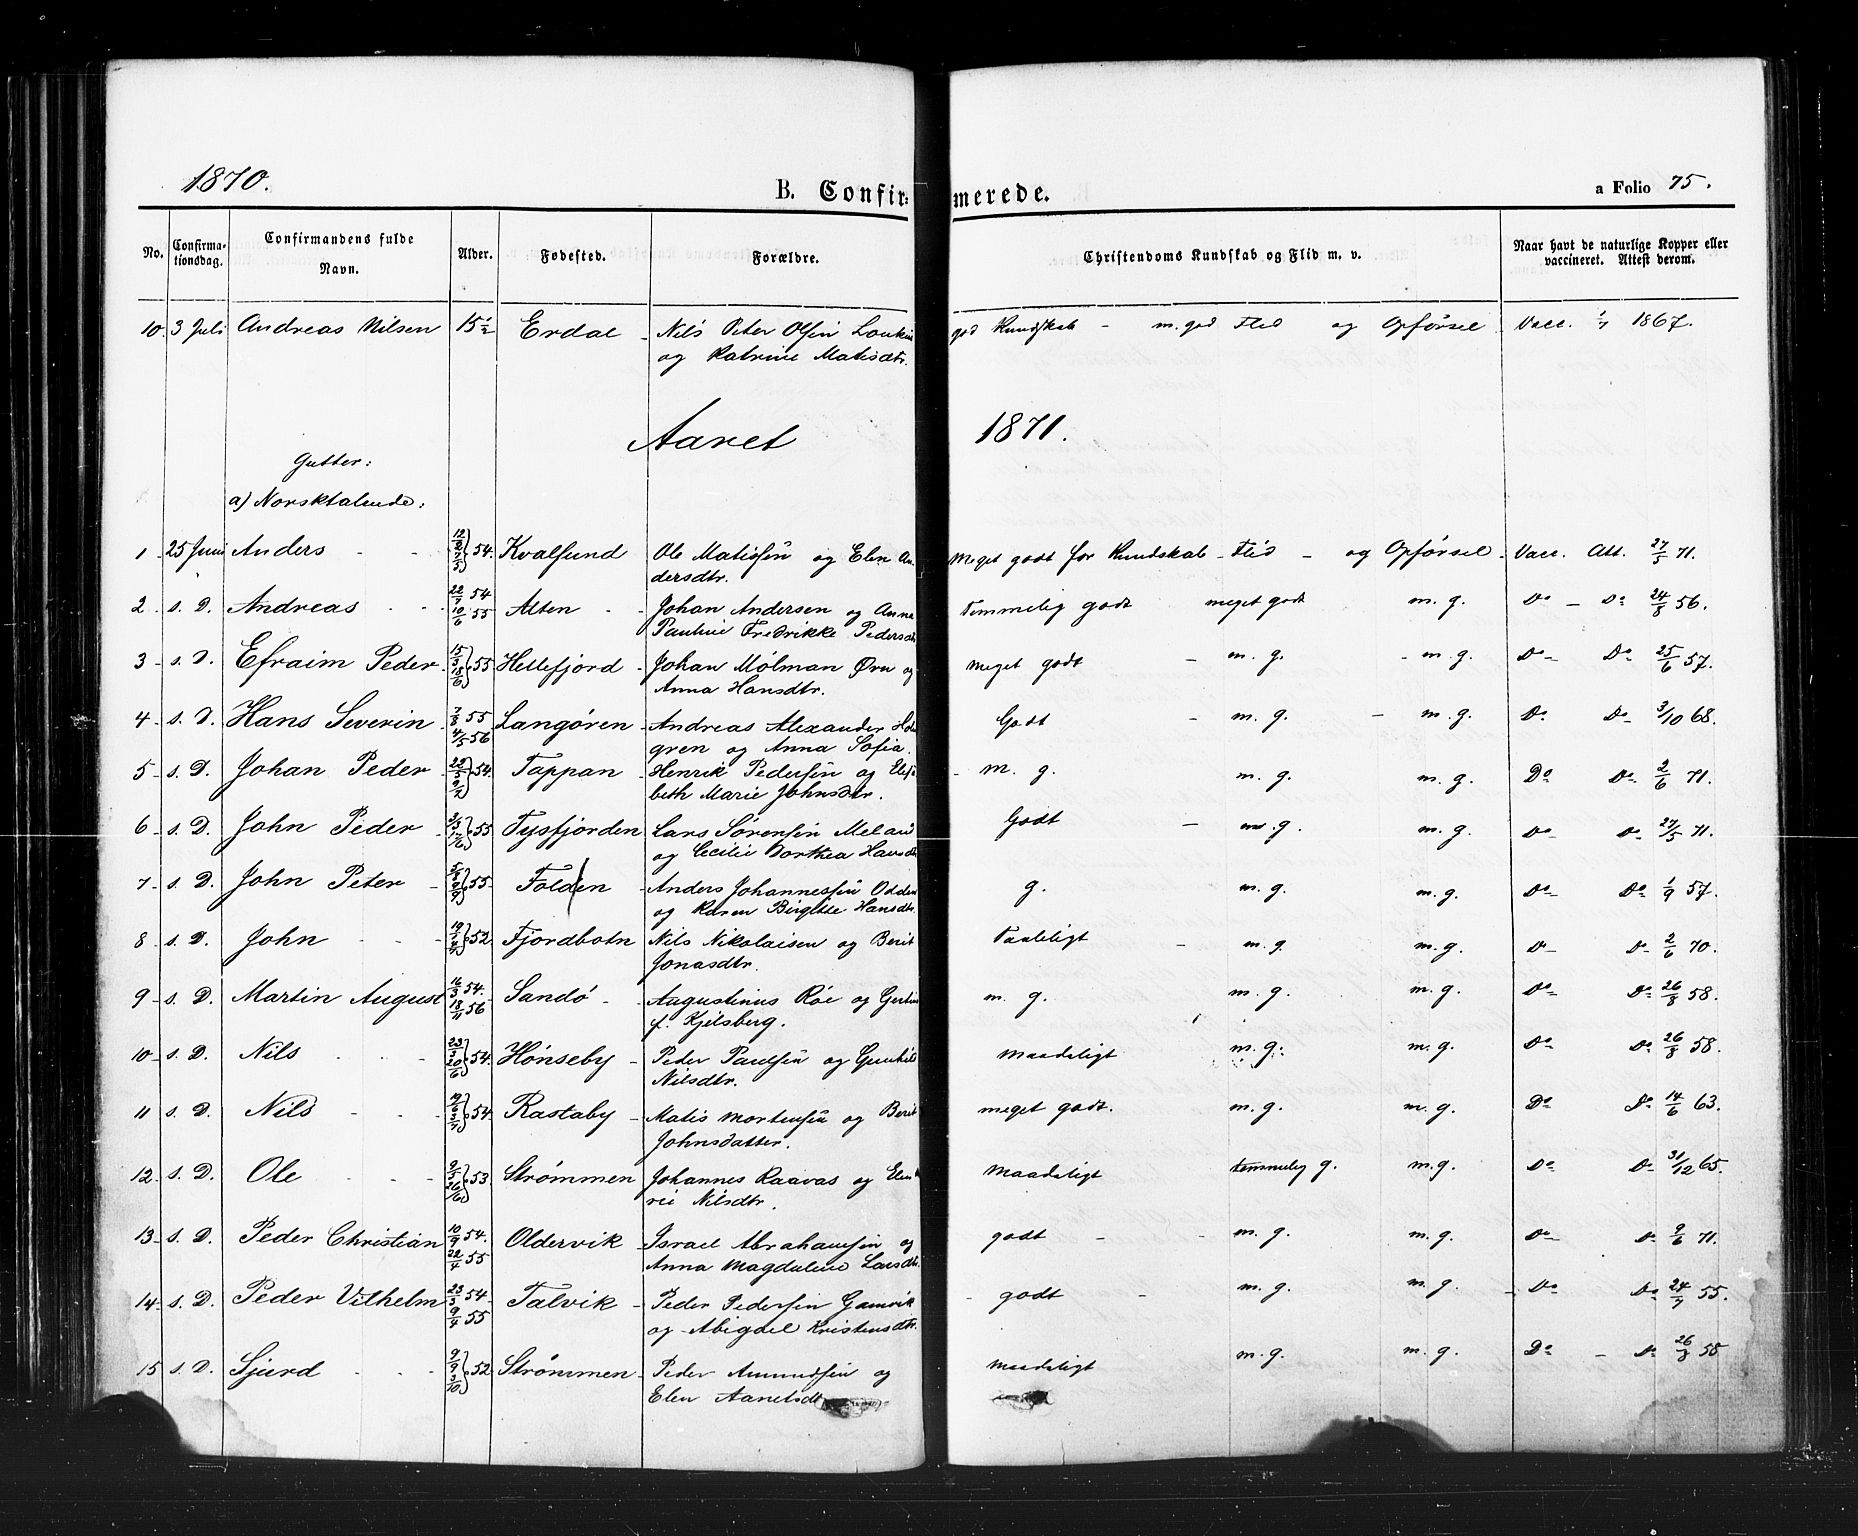 1870.
B. Confir-
merede.
a Folio 75.
No.
Confirma-
tionsdag.
Confirmandens fulde
Navn.
Alder.
Fødested.
Forældre.
Christendoms Kundskab og Flid m. v.
Naar havt de naturlige Kopper eller
vaccineret. Attest derom.
10. 3 Juli Andreas Nilsen 15 1/2 Erdal - Nils Peter Olsen god Kundskab - m. god Flid og Opførsel Vacc. 1/7 1867.
og Katrine Matisdtr.
Aaret 1871.
Gutter:
a) Norsktalende:
1 - 25 Juni Anders - - 54. Kvalsund Ole Matissen og Elen An- Meget godt for Kundskab - Flid - og Opførsel - Vacc. Att. 27/5 71.
dersdtr.
2 - s. D. Andreas - - 22/7 54 10/6 55 Alten - - Johan Andersen og Anna Temmelig godt meget godt m. g. Do - Do 24/8 56.
Pauline Fredrikke Pedersdtr
3 - s. D. Efraim Peder 15/3 18/6 55 Hellefjord - Johan Mölman Ørn og meget godt - m. g. - m. g. Do - Do 25/6 57.
Anna Hansdtr.
4 - s. D. Hans Severin 7/8 55 4/5 56 Langøren - Andreas Alexander Godt - m. g. - m. g. Do Do 3/10 68.
gren og Anna Sofia.
5 - s. D. Johan Peder - 54. Tappan - Henrik Pedersen og Elisa - m. g. m. g. m. g. Do Do 2/6 71.
beth Marie Johnsdtr.
6 - s. D. John Peder - 55 Tysfjorden Lars Sørensen Meland Godt - m. g. m. g. Do Do 27/5 71.
og Cecilie Dorthea Hansdtr
7 - s. D. John Peter - 55. Folden - Anders Johannessen Odden g. m. g. m. g. Do Do 1/9 57.
og Karen Birgitte Hansdtr.
8 - s. D. John - - 52. Fjordbotn Nils Nikolaisen og Berit Taaleligt - m. g m. g. Do Do 2/6 70.
Jonasdtr.
9 - s. D. Martin August 16/3 54. 18/11 56 Sandö - Augustinus Röe og m. g. m. g. m. g. Do Do 26/8 58.
f. Kjelsberg.
10 - s. D. Nils - - 23/3 20/6 54. Hönseby - Peder Paulsen og Gunhil maadeligt m. g. m. g. Do Do 26/8 58.
Nilsdtr.
11 - s. D. Nils - - 54. Rastaby - Matis Mortensen og Berit meget godt. m. g. m. g. Do Do 14/6 63.
Johnsdatter.
12 - s. D. Ole - - 53 Strømmen Johannes Raavas og Elen maadeligt temmelig g. m. g. Do Do 31/12 65.
rie Nilsdtr.
13 - s. D. Peder Christian 10/9 54. 22/4 55 Oldervik Israel Abrahamsen og godt - - m. g. m. g. Do Do 9/6 71.
Anna Magdalene Larsdtr.
14 - s. D. Peder Vilhelm 23/3 54 - 9/4 55 Talvik - Peder Pedersen Gamvik - godt - m. g. m. g. - Do Do 24/7 55.
og Abigael Kristensdtr.
15 s. D. Sjurd - - 9/9 3/10 52 Strømmen - Peder Amundsen og maadeligt m. g. m. g. Do - Do 26/8 58
Elen Aanetsdtr